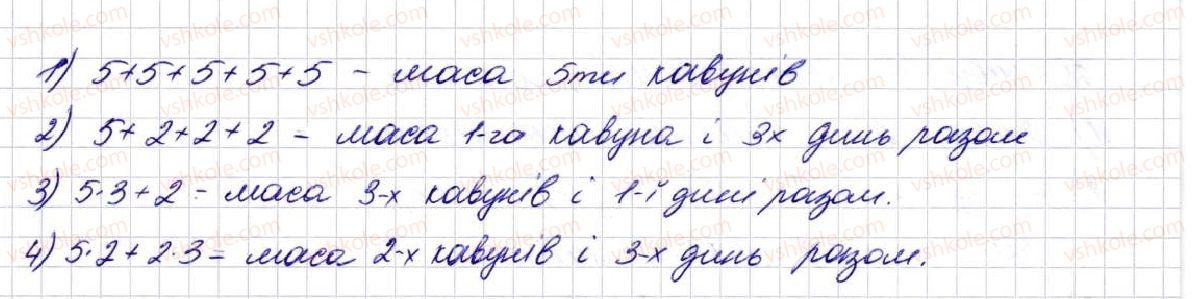 1) 5+5+5+5+5 - маса 5ти кавунів
2) 5+2+2+2 - маса 1-го кавуна і 3х динь разом
3) 5·3+2 - маса 3-х кавунів і 1-ї дині разом.
4) 5·2+2·3 = маса 2-х кавунів і 3-х динь разом.